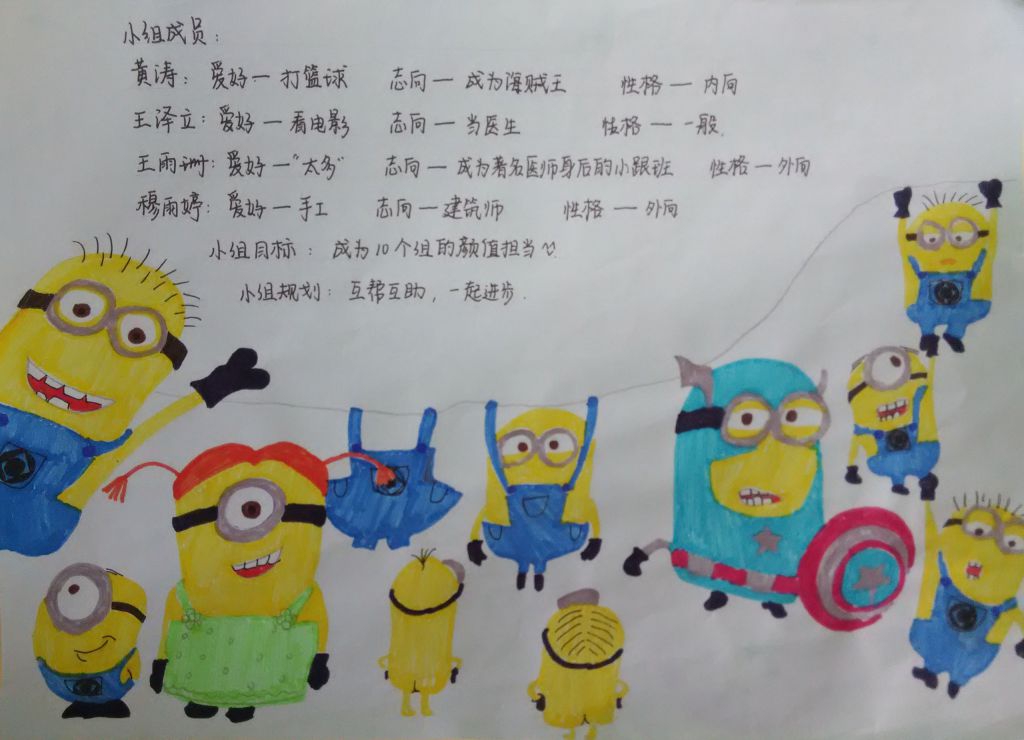 小组成员：
黄涛：爱好一打篮球 志向一成为海贼王 性格一内向
王泽立：爱好一看电影 志向一当医生 性格一一般.
王雨珊：爱好一“太多” 志向一成为著名医师身后的小跟班 性格一外向
穆雨婷：爱好一手工 志向一建筑师 性格一外向
小组目标：成为10个组的颜值担当
小组规划：互帮互助，一起进步.